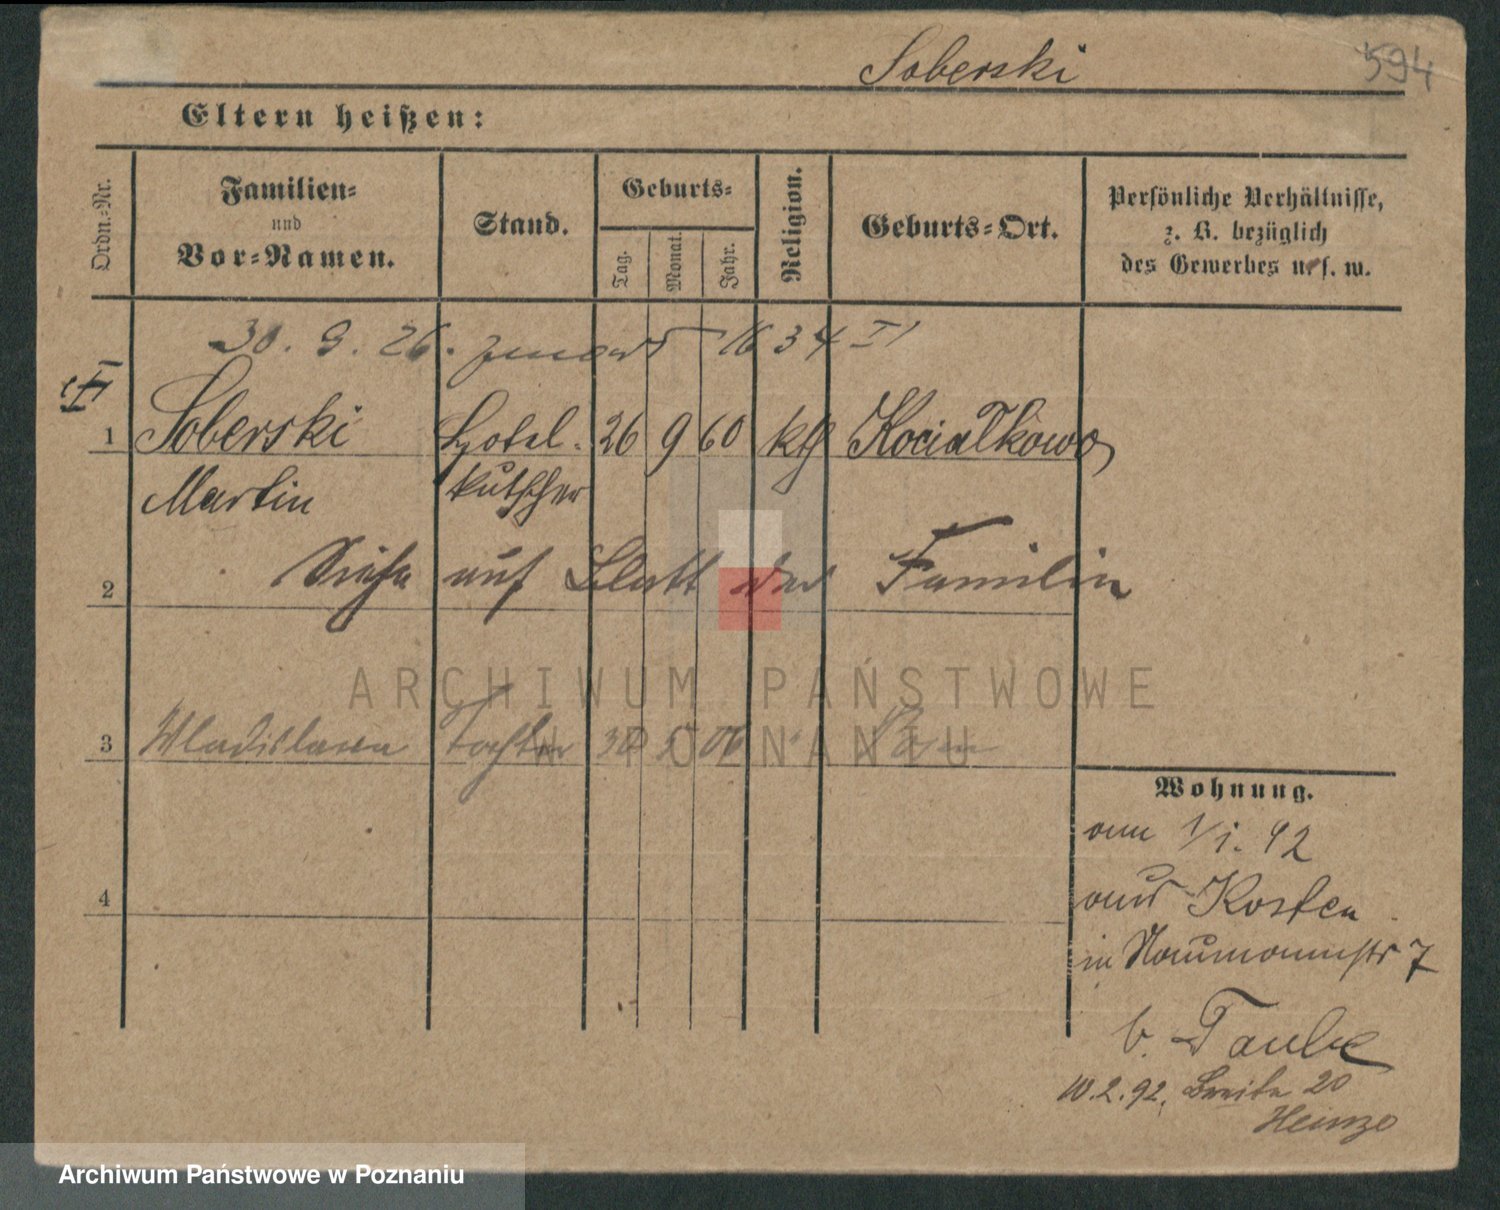 Soberski
594
Eltern heißen:
Ordn.-Nr.
Familien-
und
Vor-Namen.
Stand.
Geburts-
Tag.
Monat.
Jahr.
Religion.
Geburts-Ort.
Persönliche Verhältnisse,
z. B. bezüglich
des Gewerbes u. s. w.
30. 9. 26. 16 34 VI
1 Soberski Hotel- 26 9 60 kth Kocialkowo
Martin kutscher
2 Siehe auf Blatt der Familie
3 Wladislawa Tochter 30 06 Posen
4
Wohnung.
am 1/1. 92
aus Kosten
in Naumannstr 7
b. Taube
10.2.92. Breite 20
Heinze
ARCHIWUM PAŃSTWOWE
W POZNANIU
Archiwum Państwowe w Poznaniu